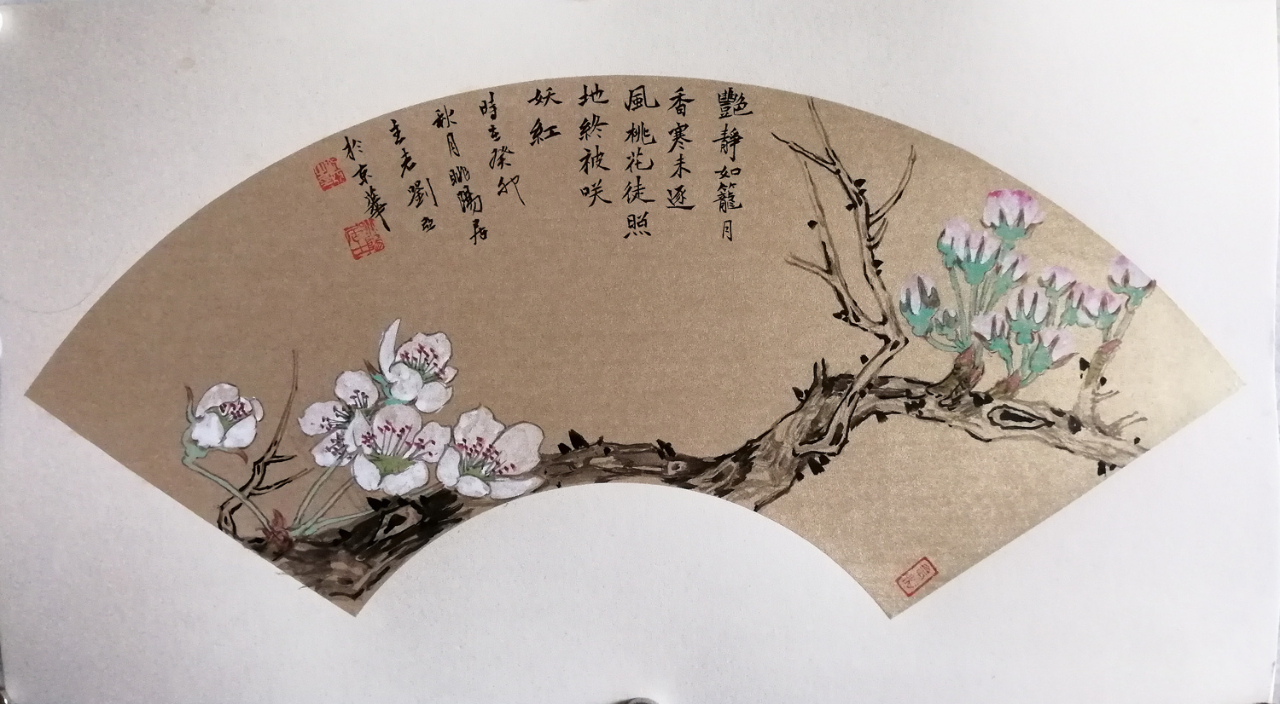 艷靜如籠月
香寒未逐
風桃花徒照
地終被咲
妖紅
時在癸卯
秋月
主老劉亞
於京華